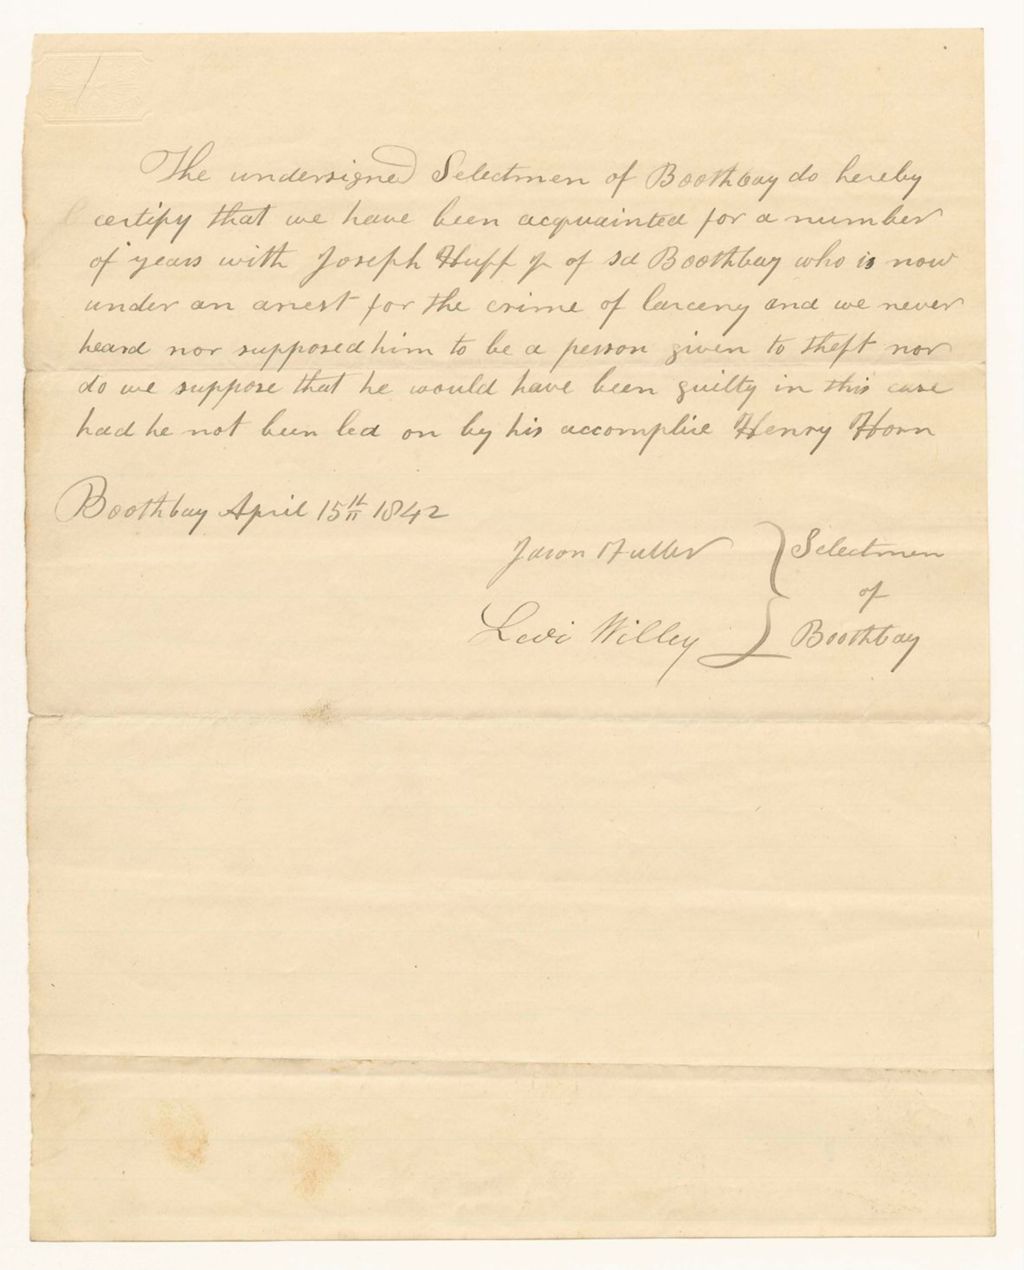 The undersigned Selectmen of Boothbay do hereby
certify that we have been acquainted for a number
of years with Joseph Huff jr of sd Boothbay who is now
under an arrest for the crime of larceny and we never
heard nor supposed him to be a person given to theft nor
do we suppose that he would have been guilty in this case
had he not been led on by his accomplice Henry Horn
Boothbay April 15th 1842
Jason Fuller } Selectmen
of
Levi Willey Boothbay